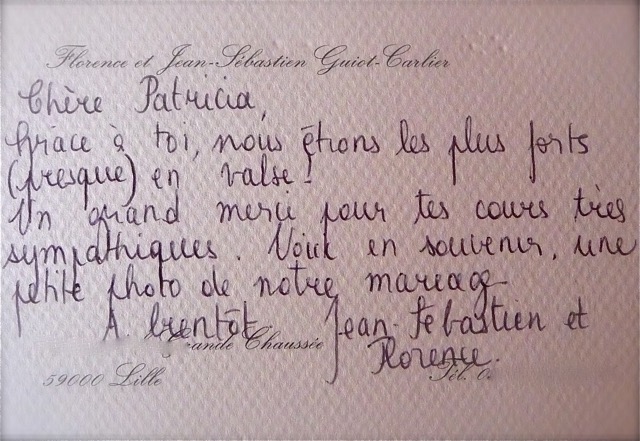 Florence et Jean-Sébastien Guiot-Carlier
Chère Patricia,
Grâce à toi, nous étions les plus forts
(presque) en valse!
Un grand merci pour tes cours très
sympathiques. Voici en souvenir, une
petite photo de notre mariage
A bientôt Jean-Sébastien et
Grande Chaussée
Florence.
59000 Lille Tél.